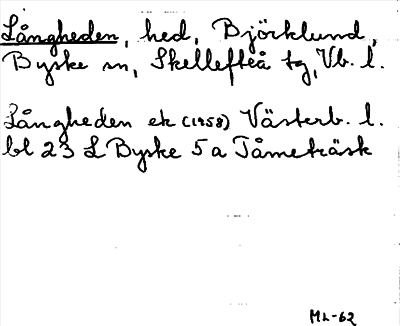 Långheden, hed, Björklund,
Byske sn, Skellefteå tg, Vb. l.
Långheden ek (1958) Västerb. l.
bl 23 L Byske 5 a Tåmeträsk
ML-62